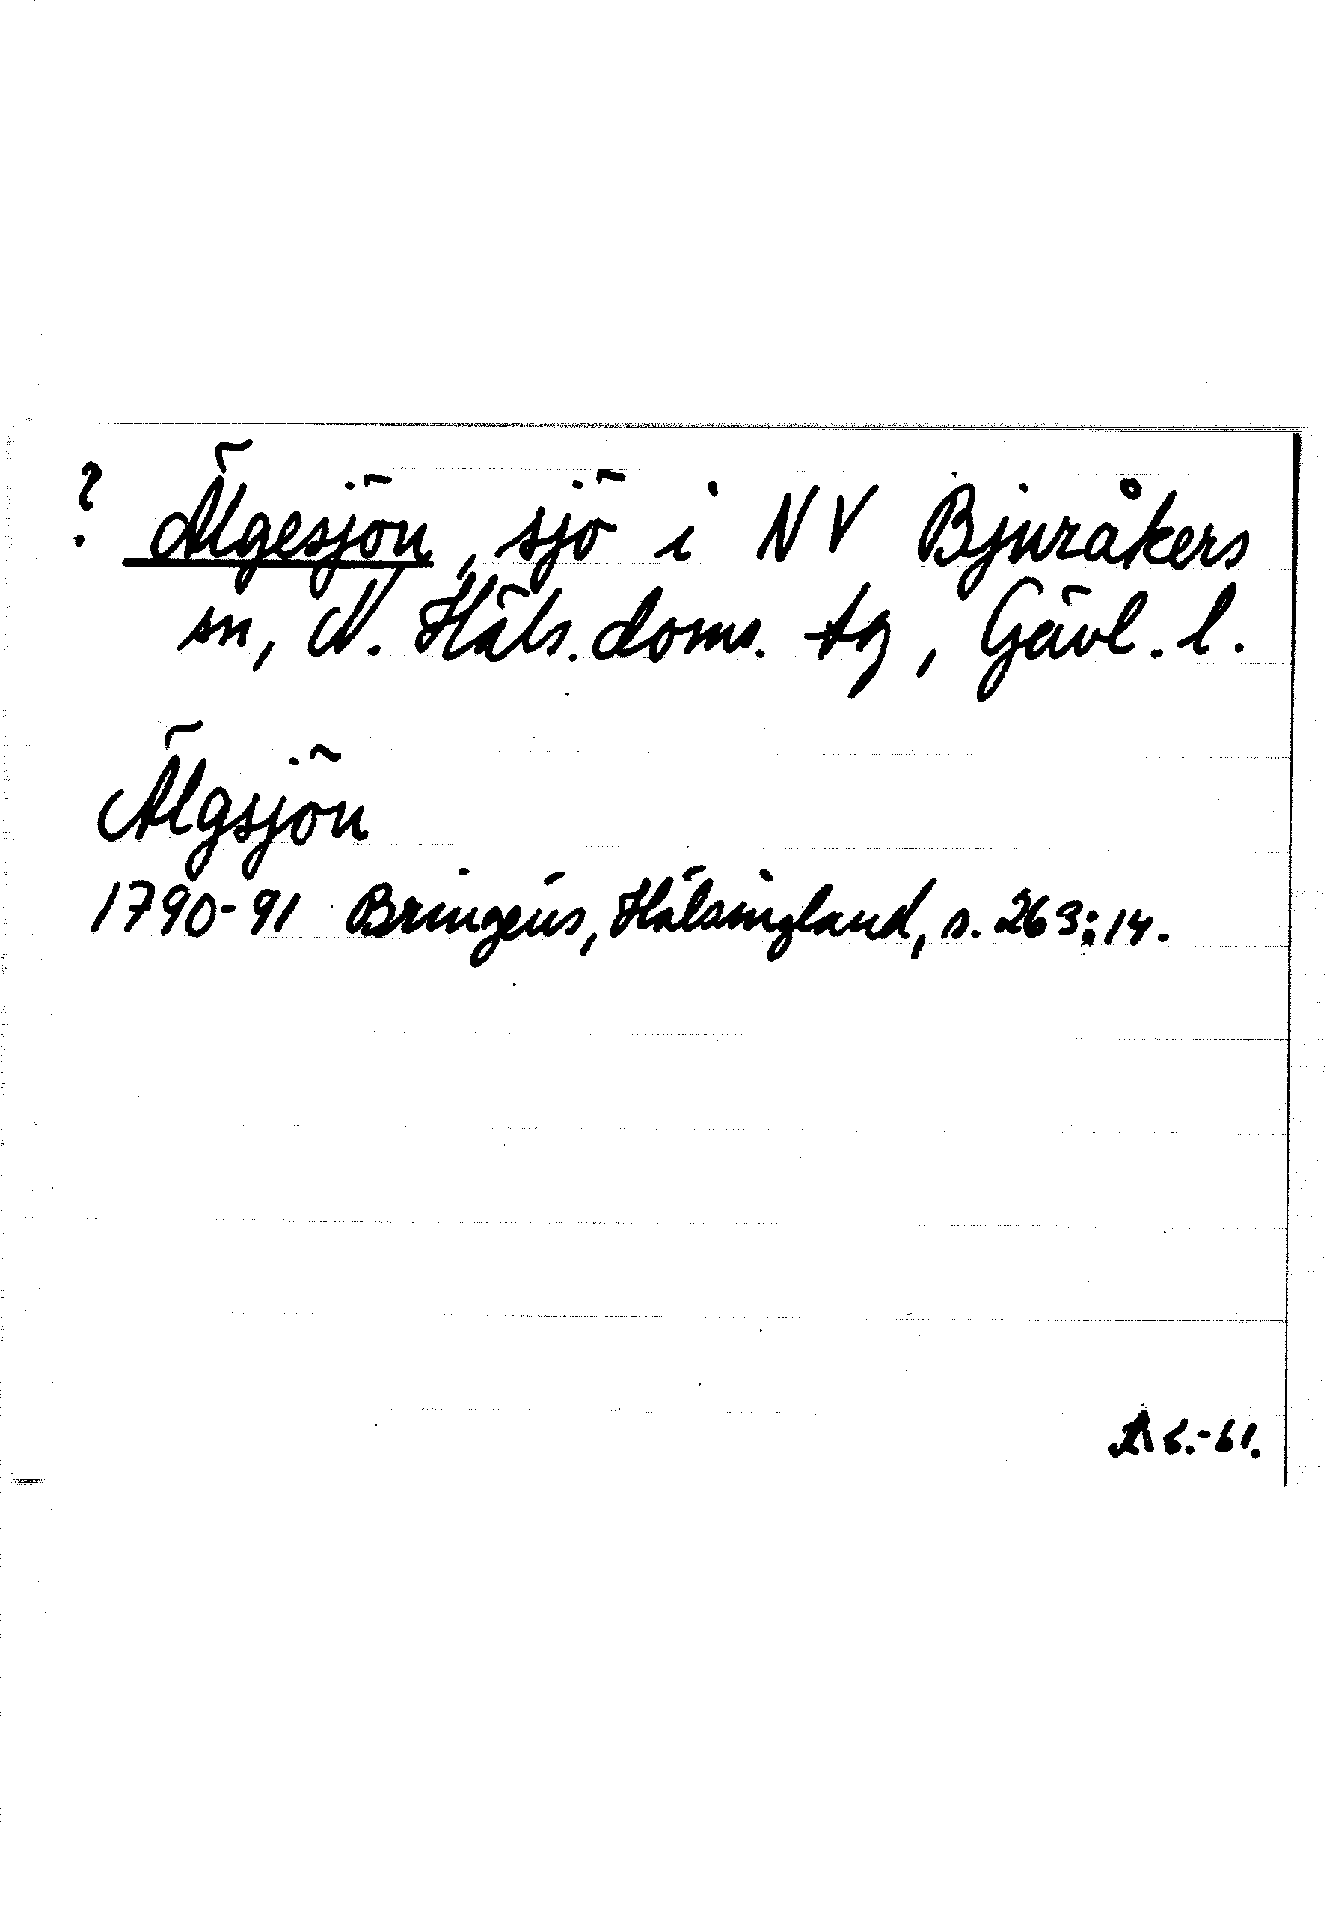 ? Älgesjön, sjö i NV Bjuråkers
sn, N. Häls. doms. tg, Gävl. l.
Älgsjön
1790-91 Bringéus, Hälsingland, s. 263:14.
6.-61.